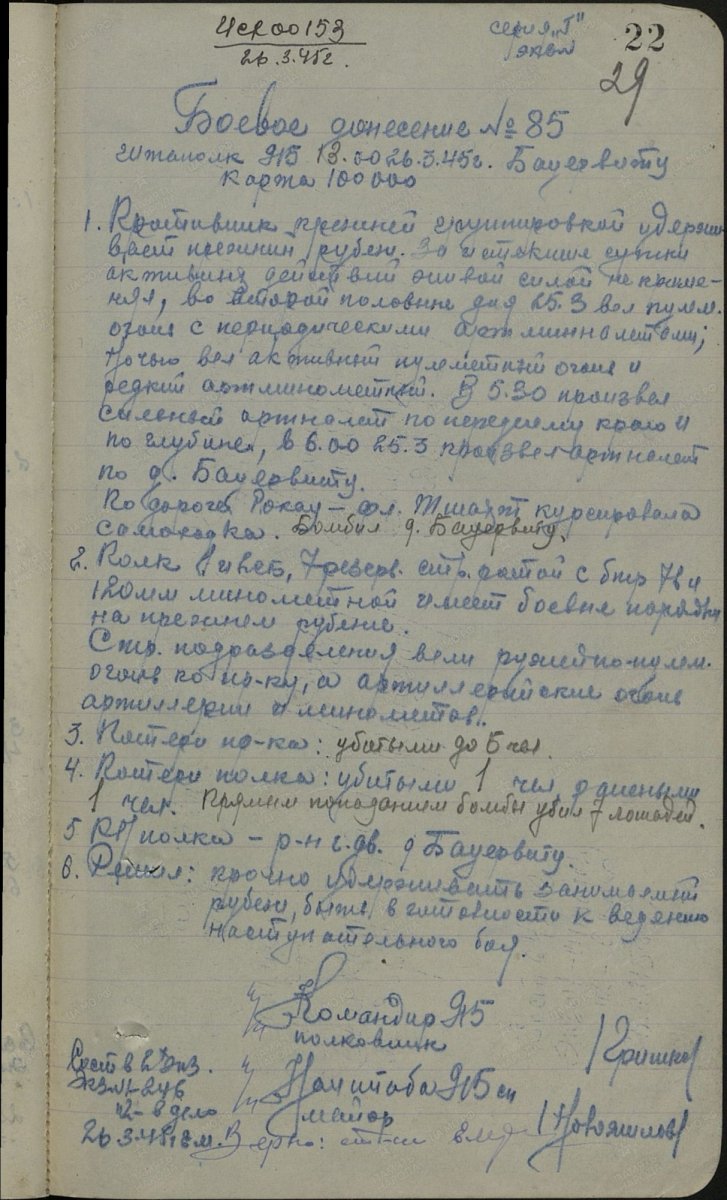 Исх 00153
26.3.45г.
серия "Г"
22
29
Боевое донесение № 85
штаполк 915 13.00 26.3.45г. Бауервитц
Карта 100000
1. Противник прежней группировкой удержи-
вает прежний рубеж. За истекшие сутки
активных действий живой силой не приме-
нял, во второй половине дня 25.3 вел пулем.
огонь с периодическими артминналетами;
ночью вел активный пулеметный огонь и
редкий артминометный. В 5.30 произвел
сильный артналет по переднему краю и
по глубине, в 6.00 25.3 произвел артналет
по д. Бауервитц.
По дороге Рокау – фл. курсировала
самоходка. Бомбил д. Бауервитц.
2. Полк 1 и 7 резерв. стр. ротой с бтр 7в и
120мм минометной имеет боевые порядки
на прежнем рубеже.
Стр. подразделения вели ружейно-пулем.
огонь по пр-ку, а артиллерийские огонь
артиллерии и минометов.
3. Потери пр-ка: убитыми до 5 чел.
4. Потери полка: убитыми 1 чел, ранеными
1 чел. Прямым попаданием бомбы убил 7 лошадей.
5 КП полка – р-н г. дв. д Бауервитц.
6. Решил: прочно удерживать занимаемый
рубеж, быть в готовности к ведению
наступательного боя.
Командир 915
полковник
Сост в 2х экз.
Экз №1 – 246
№2 – в дело
26.3.45г.
Нач штаба 915 сп
майор
Верно: